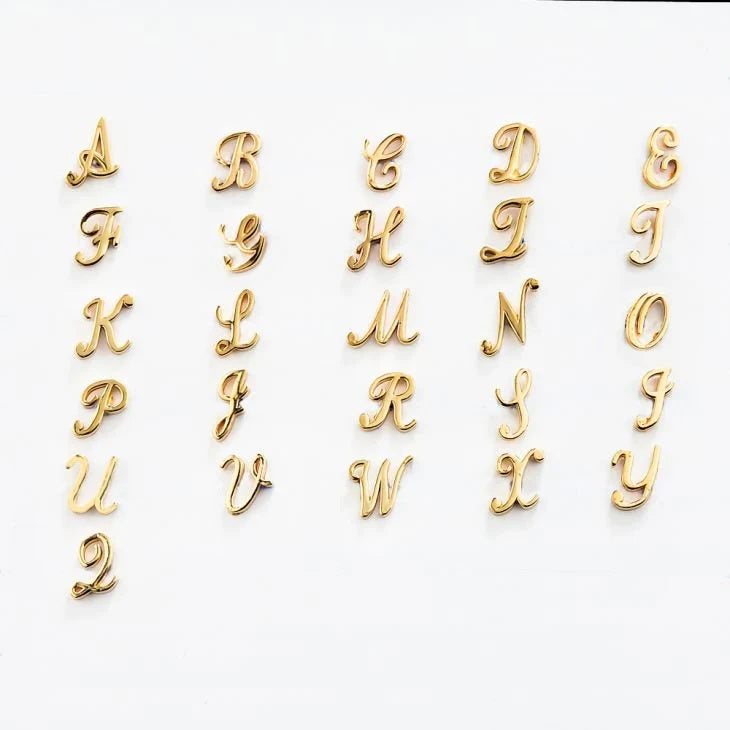 A B C D E
F G H T
K L M N O
P J R S I
U V W X Y
Q